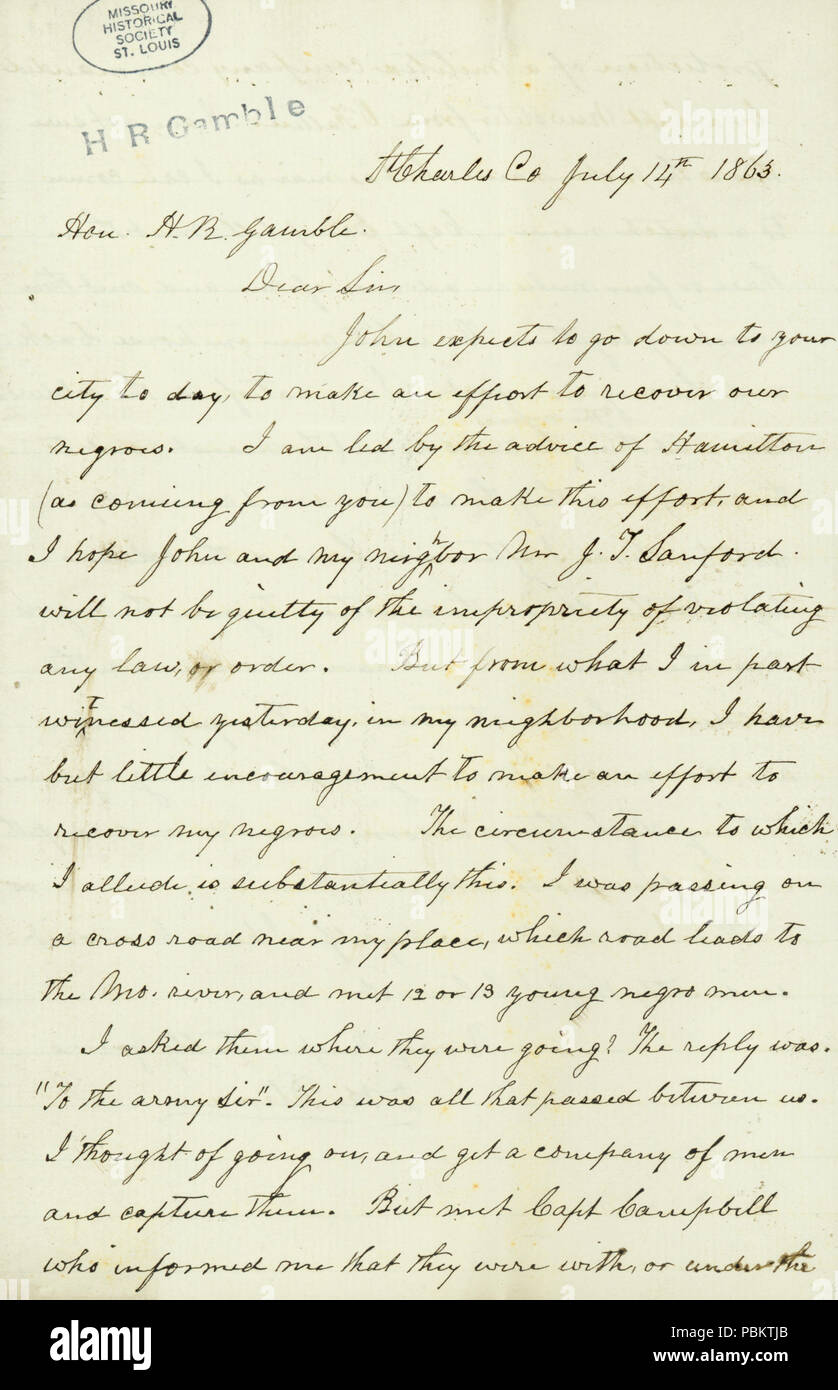 MISSOURI
HISTORICAL
SOCIETY
ST. LOUIS
H R Gamble
St Charles Co July 14th 1863.
Hon. H. R. Gamble.
Dear Sir,
John expects to go down to your
city to day, to make an effort to recover our
negroes. I am led by the advice of Hamilton
(as coming from you) to make this effort, and
I hope John and my neighbor Mr J. T. Sanford.
will not be guilty of the impropriety of violating
any law, or order. But from what I in part
witnessed yesterday, in my neighborhood, I have
but little encouragement to make an effort to
recover my negroes. The circumstance to which
I allude, is substantially this. I was passing on
a cross road near my place, which road leads to
the Mo. river, and met 12 or 13 young negro men.
I asked them where they were going? The reply was.
"To the army sir". This was all that passed between us.
I thought of going on, and get a company of men
and capture them. But met Capt Campbell
who informed me that they were with, or under the
alamy stock photo
Image ID: PBKTJB
www.alamy.com